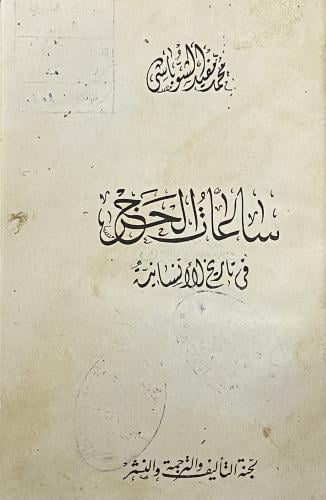 محمد مفيد الشوباشى
ساعات الحرج
فى تاريخ الإنسانية
لجنة التأليف والترجمة والنشر